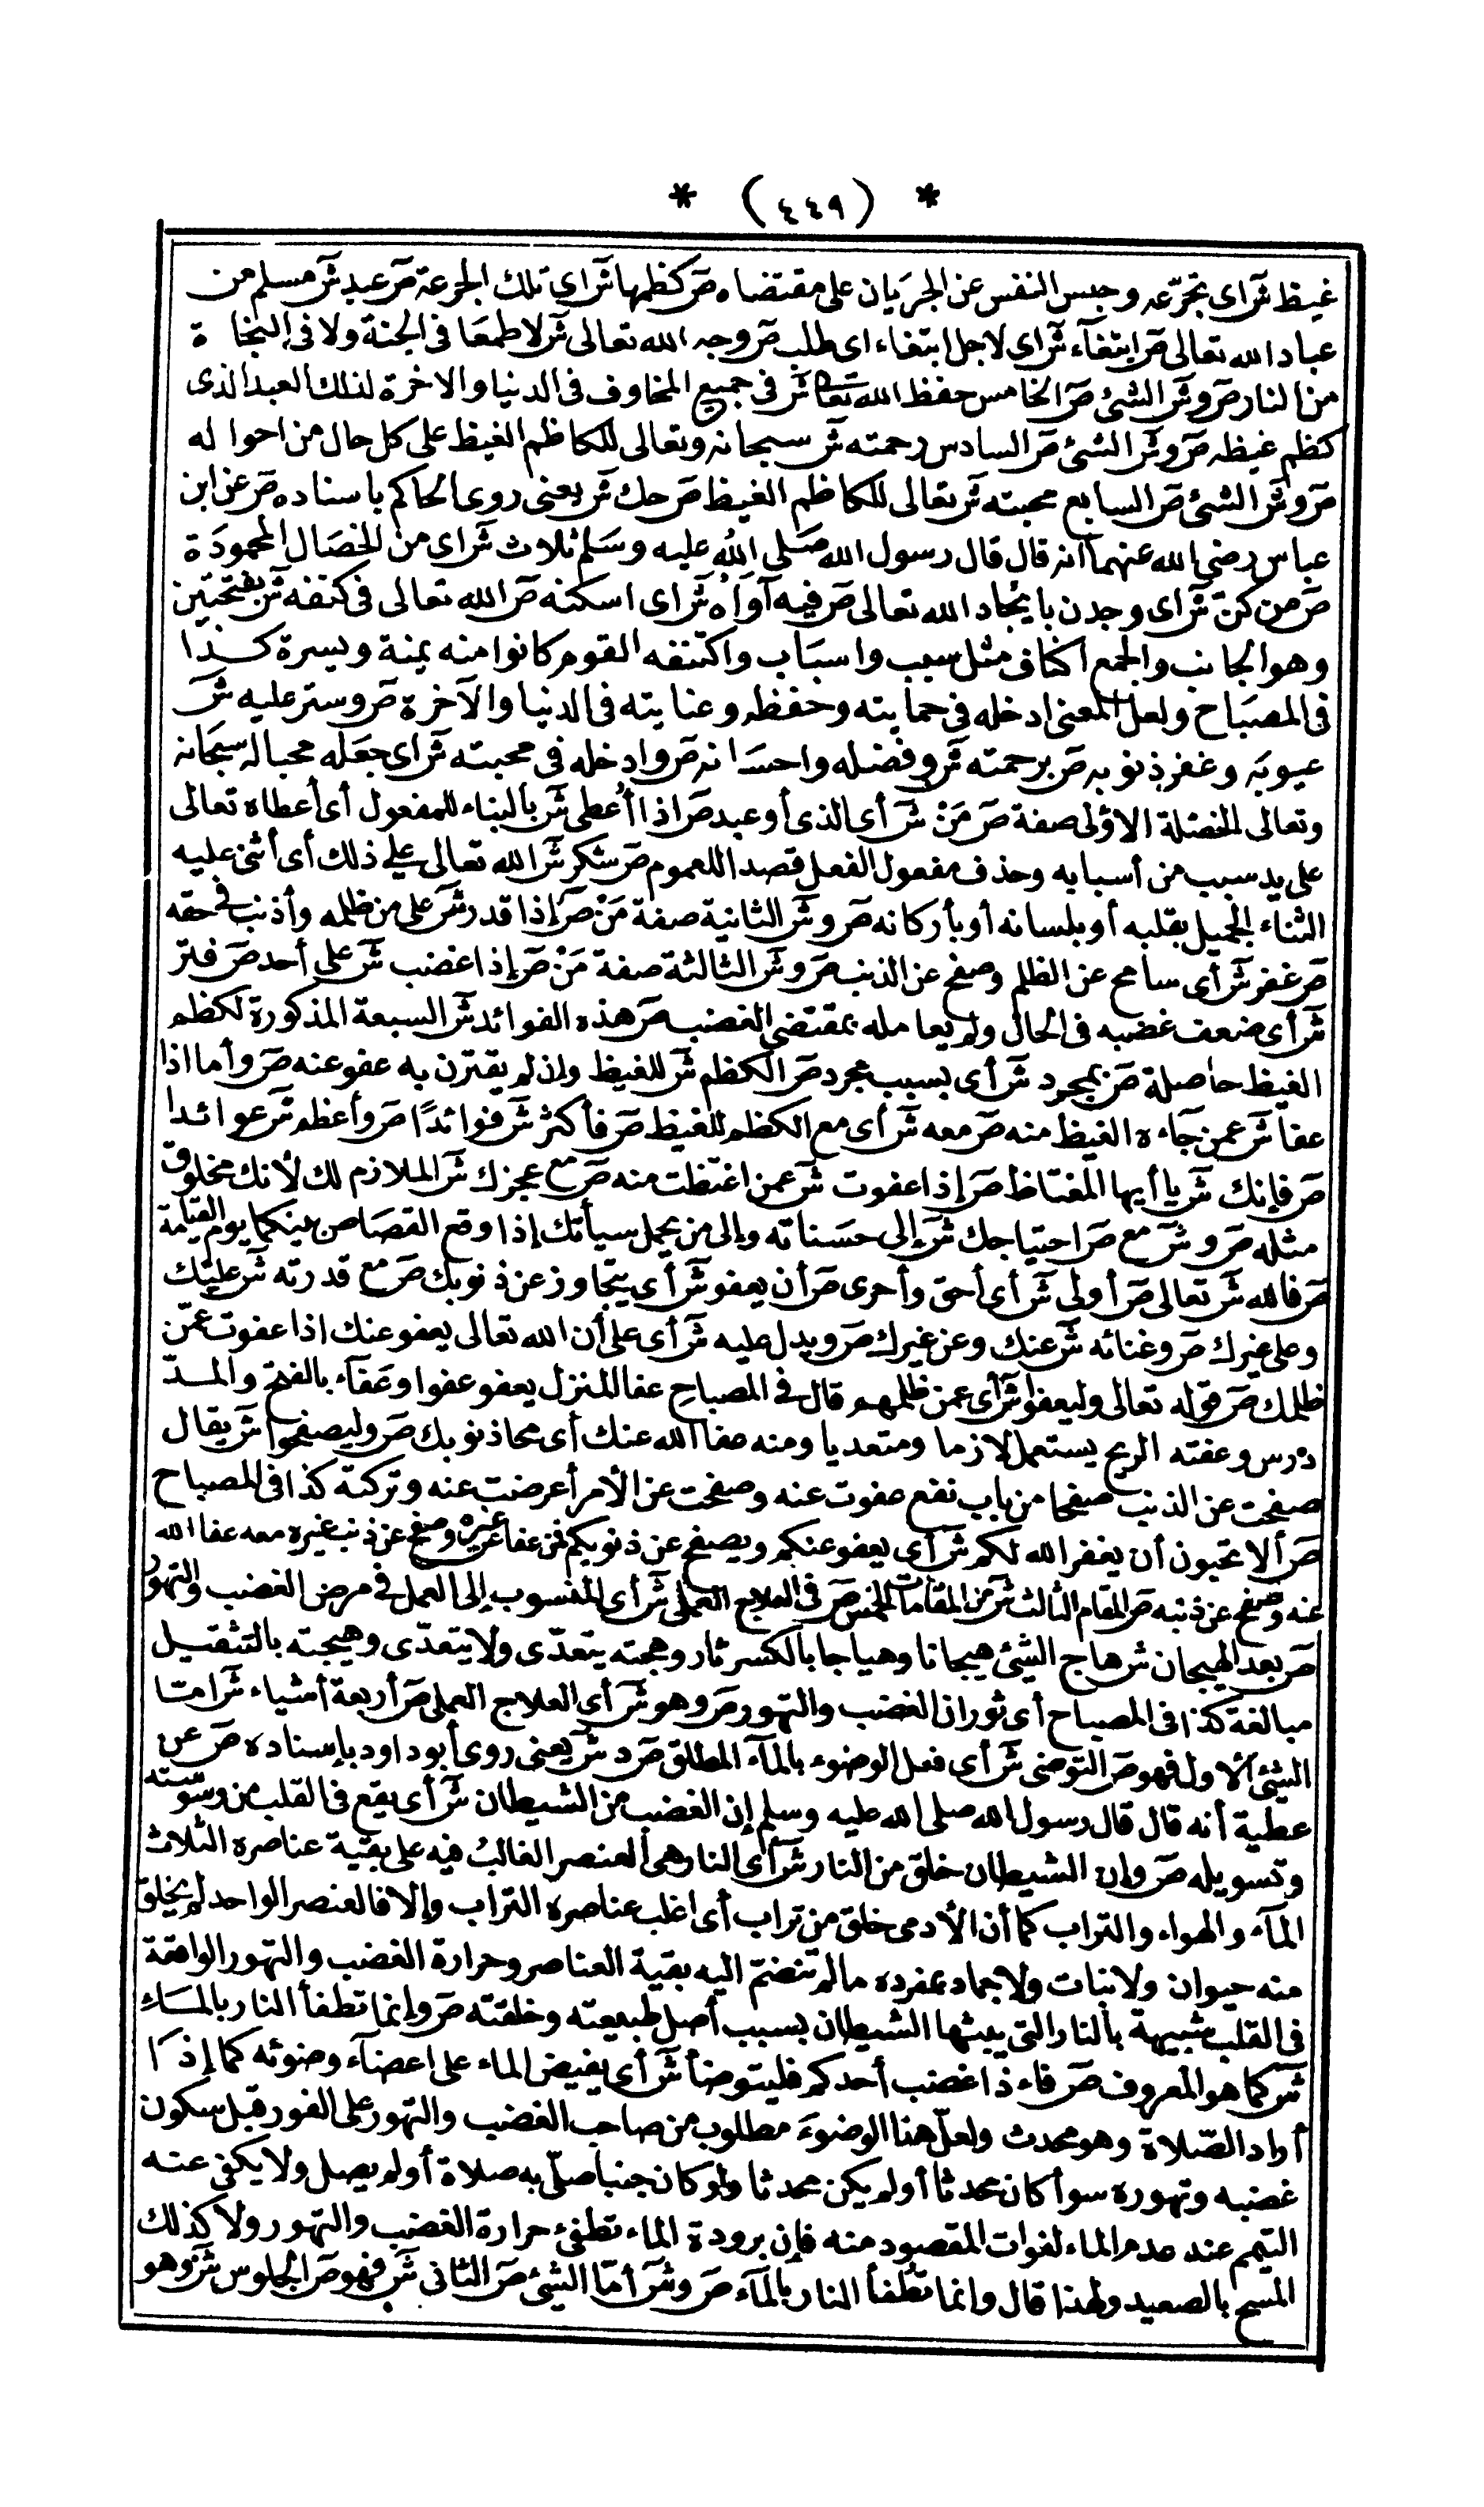 * (٤٤٩) *
غيظ شر اى تجرّعه وحبس النفس عن الجريان على مقتضاه صر كظمها شر اى تلك الجرعة صر عبد شر مسلم من
عباد الله تعالى صر ابتغآء شر اى لاجل ابتغاء اى طلب صر وجه الله تعالى شر لا طمعا فى الجنة ولا فى النجاة
من النار صر و شر الشئ صر الخامس حفظ الله تعا شر فى جميع المخاوف فى الدنيا والاخرة لذلك العبد الذى
كظم غيظه صر و شر الشئ صر السادس رحمته شر سبحانه وتعالى للكاظم الغيظ على كل حال من احواله
صر و شر الشئ صر السابع محبته شر تعالى للكاظم الغيظ صر حك شر يعنى روى الحاكم باسناده صر عن ابن
عباس رضي الله عنهما انه قال قال رسول الله صلى الله عليه وسلم ثلاث شر اى من الخصال المحمودة
صر من كن شر اى وجدن بايجاد الله تعالى صر فيه آواه شر اى اسكنه صر الله تعالى فى كنفه شر بفتحتين
وهو الجانب والجمع اكناف مثل سبب واسباب واكتنفه القوم كانوا منه يمنة ويسرة كذا
فى المصباح ولعل المعنى ادخله في حمايته وحفظه وعنايته فى الدنيا والآخرة صر وستر عليه شر
عيوبه وغفر ذنوبه صر برحمته شر وفضله واحسانه صر وادخله في محبته شر اى جعله محبا له سبحانه
وتعالى الخصلة الاولى صفة صر مَنْ شر أى الذى أو عبد صر اذا أُعطى شر بالبناء للمفعول أى أعطاه تعالى
على يد سبب من أسبابه وحذف مفعول الفعل قصدا للعموم صر شكر شر الله تعالى على ذلك أى أثنى عليه
الثناء الجميل بقلبه أو بلسانه أو بأركانه صر و شر الثانية صفة مَنْ صر إذا قدر شر على من ظلمه وأذنب فى حقه
صر غفر شر أى سامح عن الظلم وصفح عن الذنب صر و شر الثالثة صفة مَنْ صر إذا غضب شر على أحد صر فتر
شر أى ضعف غضبه فى الحال ولم يعامله بمقتضى الغضب صر هذه الفوائد شر السبعة المذكورة لكظم
الغيظ حاصلة صر بمجرد شر أى بسبب مجرد صر الكظم شر للغيظ وإن لم يقترن به عفو عنه صر وأما اذا
عفا شر عمن جآءه الغيظ منه صر معه شر أى مع الكظم للغيظ صر فأكثر شر فوائدًا صر وأعظم شر عوائدا
صر فإنك شر يا أيها المغتاظ صر إذا عفوت شر عمن اغتظت منه صر مع عجزك شر الملازم لك لأنك مخلوق
مثله صر و شر مع صر احتياجك شر إلى حسناته وإلى من يحمل سيأتك إذا وقع القصاص بينكما يوم القيامة
صر فالله شر تعالى صر أولى شر أى أحق وأحرى صر أن يعفو شر أى يتجاوز عن ذنوبك صر مع قدرته شر عليك
وعلى غيرك صر وغنائه شر عنك وعن غيرك صر ويدل عليه شر أى على أن الله تعالى يعفو عنك اذا عفوت عمّن
ظلمك صر قوله تعالى وليعفوا شر أى عمن ظلمهم قال فى المصباح عفا المنزل يعفو عفوا وعفآء بالفتح والمدّ
درس وعفته الريح يستعمل لازما ومتعديا ومنه عفا الله عنك أى محا ذنوبك صر وليصفحوا شر يقال
صفحت عن الذنب صفحا من باب نفع عفوت عنه وصفحت عن الأمر أعرضت عنه وتركته كذا فى المصباح
صر ألا تحبون أن يغفر الله لكم شر أى يعفو عنكم ويصفح عن ذنوبكم فمن عفا عن غيره وصفح عن ذنب غيره معه عفا الله
عنه وصفح عن ذنبه صر المقام الثالث شر من المقامات الخمس صر فى العلاج العملى شر أى المنسوب إلى العمل في مرض الغضب والتهور
صر بعد الهيجان شر هاج الشئ هيجانا وهياجا بالكسر ثار وهجته يتعدّى ولا يتعدّى وهيجته بالتثقيل
مبالغة كذا فى المصباح أى ثوران الغضب والتهور صر وهو شر أى العلاج العملى صر أربعة أشياء شر امّا
الشئ الاول فهو صر التوضى شر أى فعل الوضوء بالمآء المطلق صر د شر يعنى روى أبو داود بإسناده صر عن
عطية أنه قال قال رسول الله صلى الله عليه وسلم إن الغضب من الشيطان شر أى يقع فى القلب من وسوسته
وتسويله صر وإن الشيطان خلق من النار شر أى النار هى العنصر الغالبُ فيه على بقية عناصره الثلاث
المآء والهواء والتراب كما أن الأدمى خلق من تراب أى اغلب عناصره التراب وإلا فالعنصر الواحد لم يخلق
منه حيوان ولا نبات ولا جماد بمفرده مالم تنضمّ اليه بقية العناصر وحرارة الغضب والتهور الواقعة
فى القلب شبيهة بالنار التى يبثها الشيطان بسبب أصل طبيعته وخلقته صر وإنما تطفأ النار بالمَاءِ
شر كما هو المعروف صر فاءذا غضب أحدكم فليتوضأ شر أى يفيض الماء على اعضآء وضوئه كما إذا
أراد الصّلاة وهو محدث ولعلّ هذا الوضوءَ مطلوب من صاحب الغضب والتهور على الفور قبل سكون
غضبه وتهوره سوأ كان محدثا أو لم يكن محدثا ولو كان جنبا صلّى به صلاة أو لم يصل ولا يكفى عنه
التيمم عند عدم الماء لفوات المقصود منه فإن برودة الماء تطفئ حرارة الغضب والتهور ولا كذلك
المسح بالصعيد ولهذا قال وانما تطفأ النار بالمآء صر و شر أمّا الشئ صر الثانى شر فهو صر الجلوس شر وهو